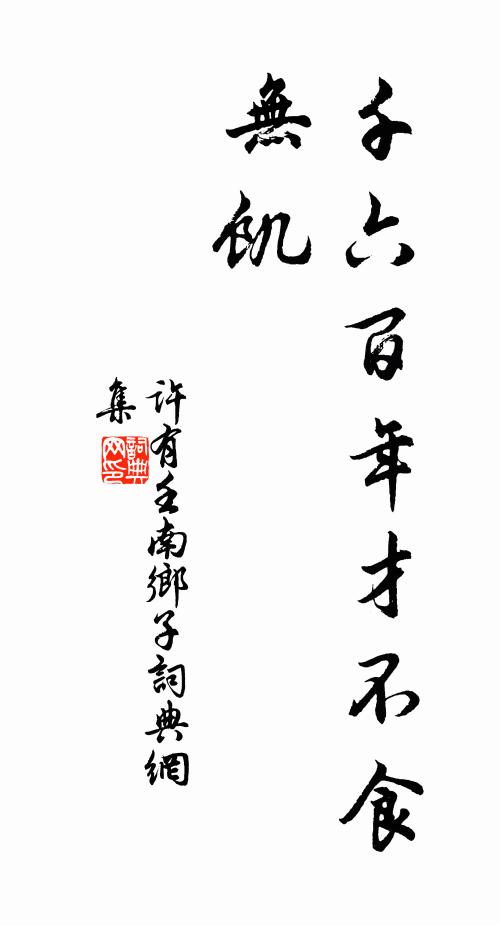 千六百年才不食
無飢
許有壬南鄉子詞典網
集
詞典
网印